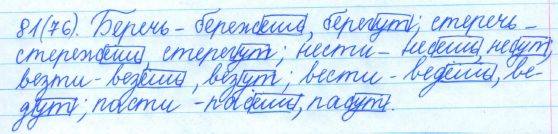 81(76). Беречь - бережёшь, берегут; стеречь -
стережёшь, стерегут; нести - несёшь, несут,
везти - везёшь, везут; вести - ведёшь, ве-
дут; пасти - пасёшь, пасут.